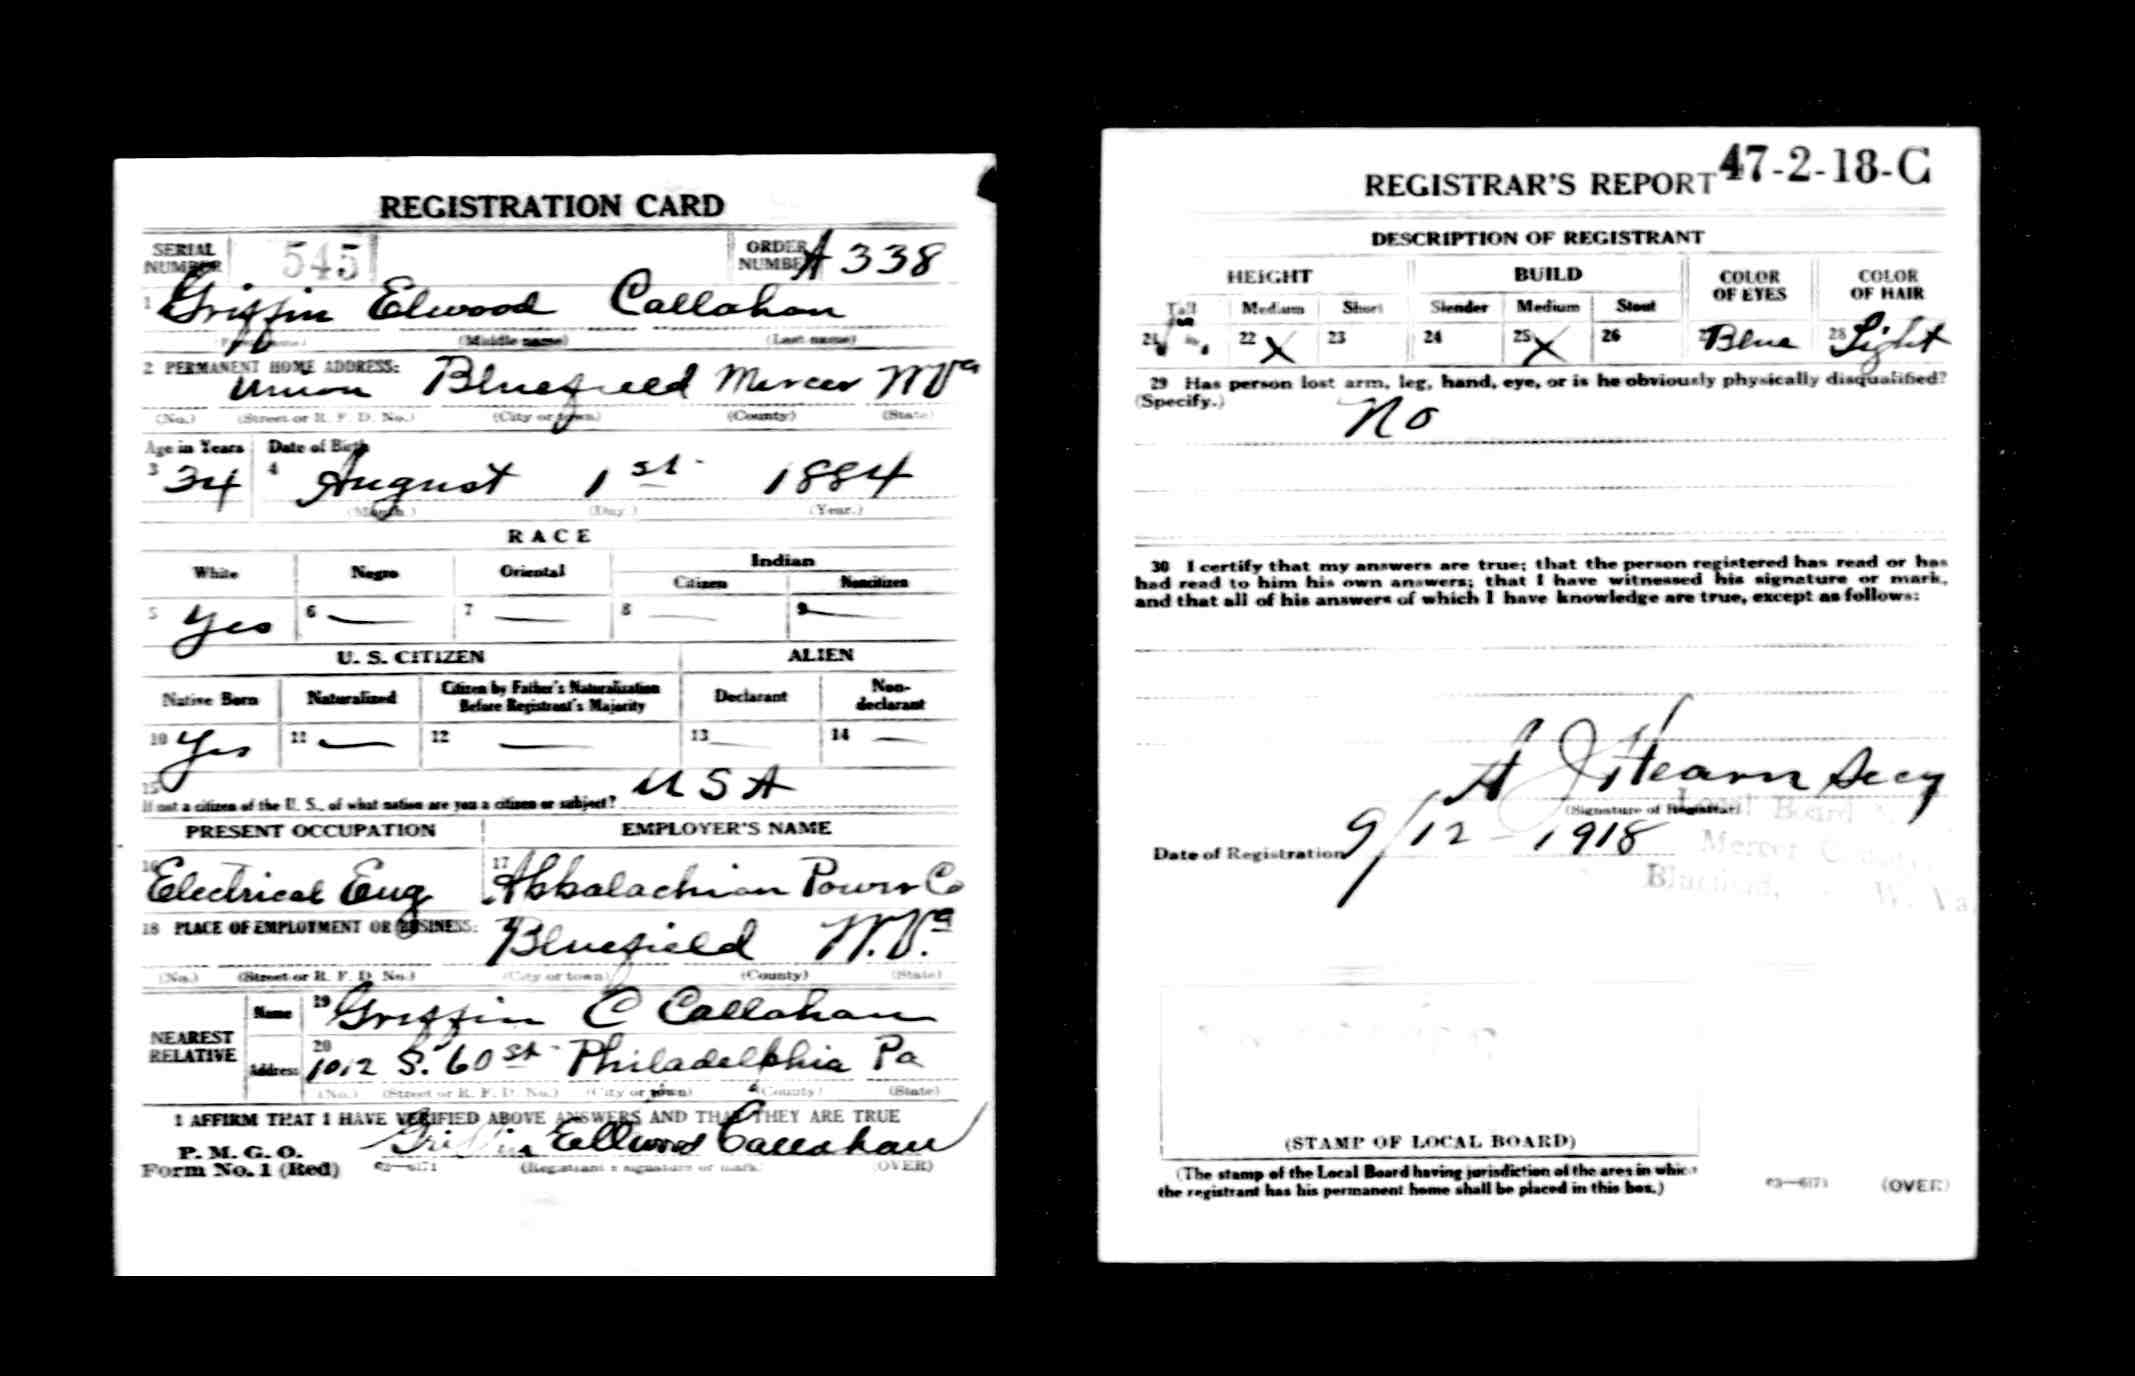 REGISTRATION CARD
SERIAL NUMBER 545 ORDER NUMBER A 338
1 Griffin Elwood Callahan
(First name) (Middle name) (Last name)
2 PERMANENT HOME ADDRESS:
Union Bluefield Mercer W Va
(No.) (Street or R. F. D. No.) (City or town) (County) (State)
Age in Years Date of Birth
3 34 4 August 1st 1884
(Month.) (Day.) (Year.)
RACE
White Negro Oriental Indian
Citizen Noncitizen
5 Yes 6 — 7 — 8 — 9 —
U. S. CITIZEN ALIEN
Native Born Naturalized Citizen by Father's Naturalization Before Registrant's Majority Declarant Non-declarant
10 Yes 11 — 12 — 13 — 14 —
15 If not a citizen of the U. S., of what nation are you a citizen or subject? U S A
PRESENT OCCUPATION EMPLOYER'S NAME
16 Electrical Eng 17 Appalachian Power Co
18 PLACE OF EMPLOYMENT OR BUSINESS:
Bluefield W. Va
(No.) (Street or R. F. D. No.) (City or town) (County) (State)
NEAREST RELATIVE
Name 19 Griffin C Callahan
Address 20 1012 S. 60 st Philadelphia Pa
(No.) (Street or R. F. D. No.) (City or town) (County) (State)
I AFFIRM THAT I HAVE VERIFIED ABOVE ANSWERS AND THAT THEY ARE TRUE
P. M. G. O.
Form No. 1 (Red) 03—6171 Griffin Ellwood Callahan
(Registrant's signature or mark) (OVER)
47-2-18-C
REGISTRAR'S REPORT
DESCRIPTION OF REGISTRANT
HEIGHT BUILD COLOR OF EYES COLOR OF HAIR
Tall Medium Short Slender Medium Stout
21 22 X 23 24 25 X 26 27 Blue 28 Light
29 Has person lost arm, leg, hand, eye, or is he obviously physically disqualified?
(Specify.) No
30 I certify that my answers are true; that the person registered has read or has
had read to him his own answers; that I have witnessed his signature or mark,
and that all of his answers of which I have knowledge are true, except as follows:
A J Hearn Secy
(Signature of Registrar)
Local Board
Date of Registration 9/12-1918
Mercer County
Bluefield, W. Va.
(STAMP OF LOCAL BOARD)
(The stamp of the Local Board having jurisdiction of the area in which
the registrant has his permanent home shall be placed in this box.)
03—6171 (OVER)